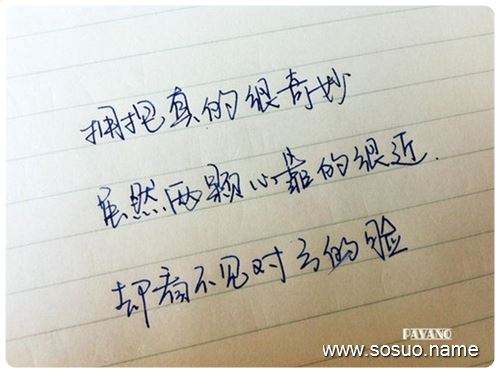 拥抱真的很奇妙
虽然两颗心靠的很近.
却看不见对方的脸
PAVANO
www.sosuo.name